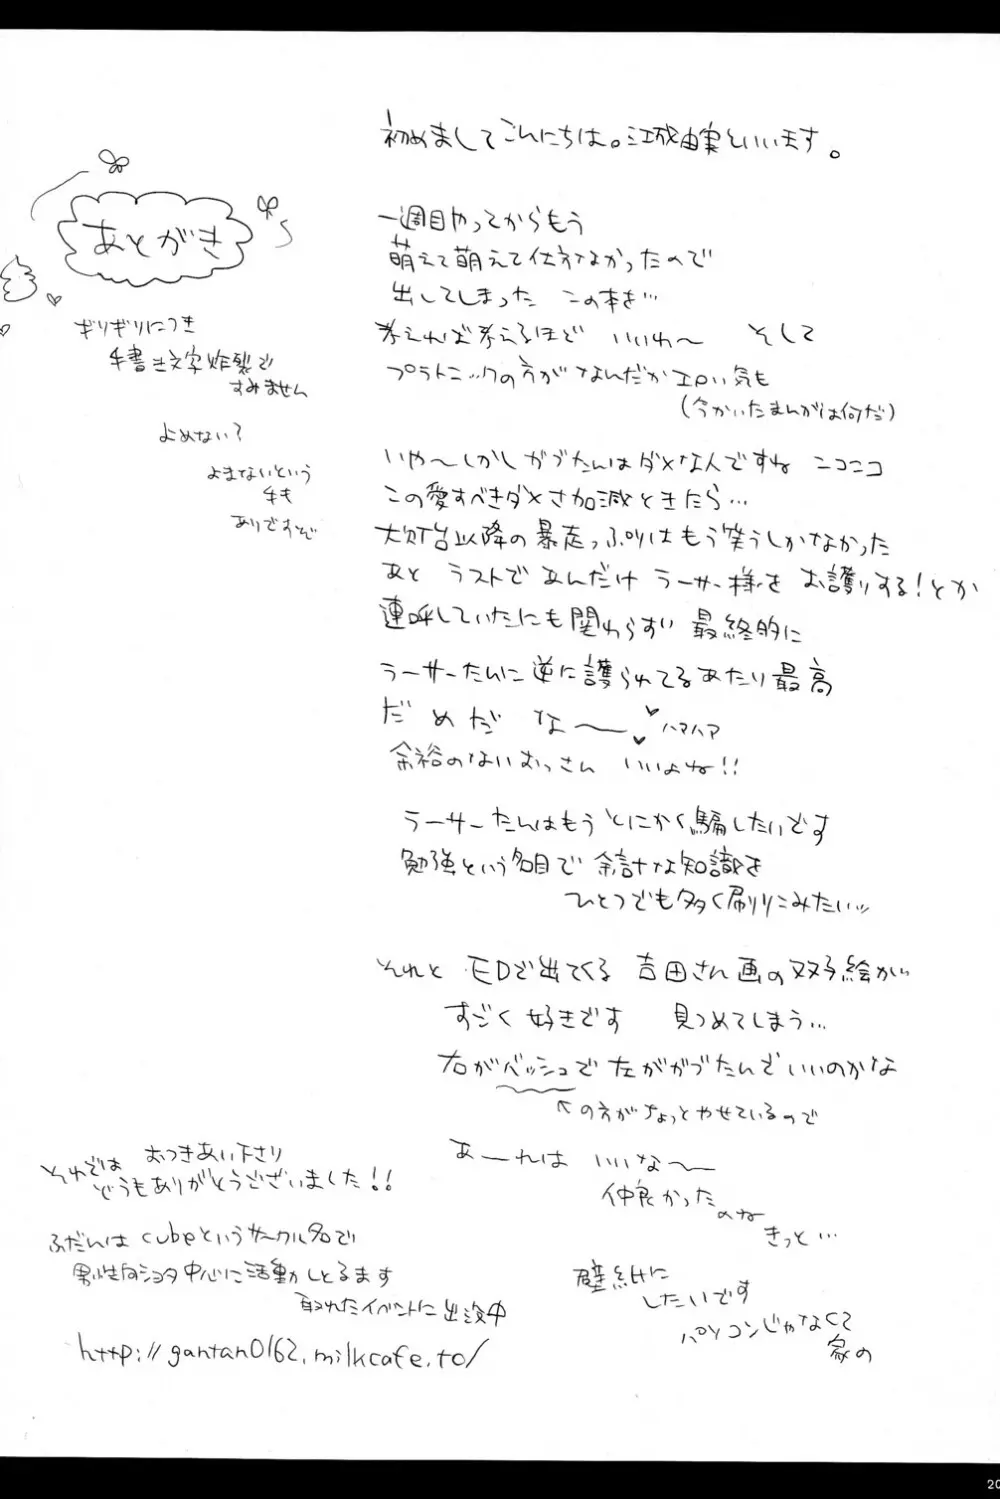 初めましてこんにちは。江成由実といいます。
あとがき
ギリギリにつき
手書き文字炸裂で
すみません
よめない?
よまないという
手も
ありですぞ
一週目やってからもう
萌えて萌えて仕方なかったので
出してしまった この本を…
考えれば考えるほど いいわ〜 そして
プラトニックの方がなんだかエロい気も
(今かいたまんがは何だ)
いや〜しかしガブたんはダメな人ですね ニコニコ
この愛すべきダメさ加減ときたら…
大灯台以降の暴走っぷりはもう笑うしかなかった
あと ラストであんだけ ラーサー様を お護りする!とか
連呼していたにも関わらず 最終的に
ラーサーたんに逆に護られてるあたり最高
だめだな〜 ハァハァ
余裕のないおっさん いいよね!!
ラーサーたんはもうとにかく騙したいです
勉強という名目で 余計な知識を
ひとつでも多く刷りこみたい
それと EDで出てくる 吉田さん画の双子絵が
すごく好きです 見つめてしまう…
右がバッシュで左がガブたんでいいのかな
←の方がちょっとやせているので
あーれは いいな〜
仲良かった
のね
きっと…
壁紙に
したいです
パソコンじゃなくて
家の
それでは おつきあい下さり
どうもありがとうございました!!
ふだんはcubeというサークル名で
男性向ショタ中心に活動しとるます
取れたイベントに出没中
http://gantan0162.milkcafe.to/
20